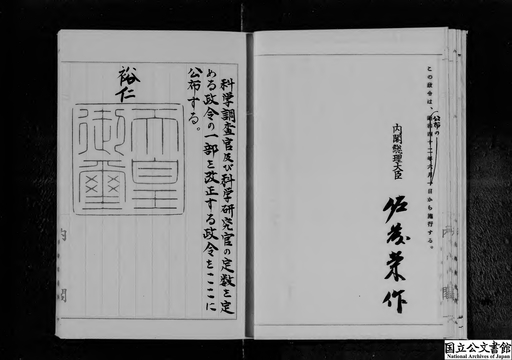 この政令は、公布の昭和四十二年六月一日から施行する。
内閣総理大臣
佐藤榮作
科学調査官及び科学研究官の定数を定
める政令の一部を改正する政令をここに
公布する。
裕仁
天皇
御璽
内閣
国立公文書館
National Archives of Japan